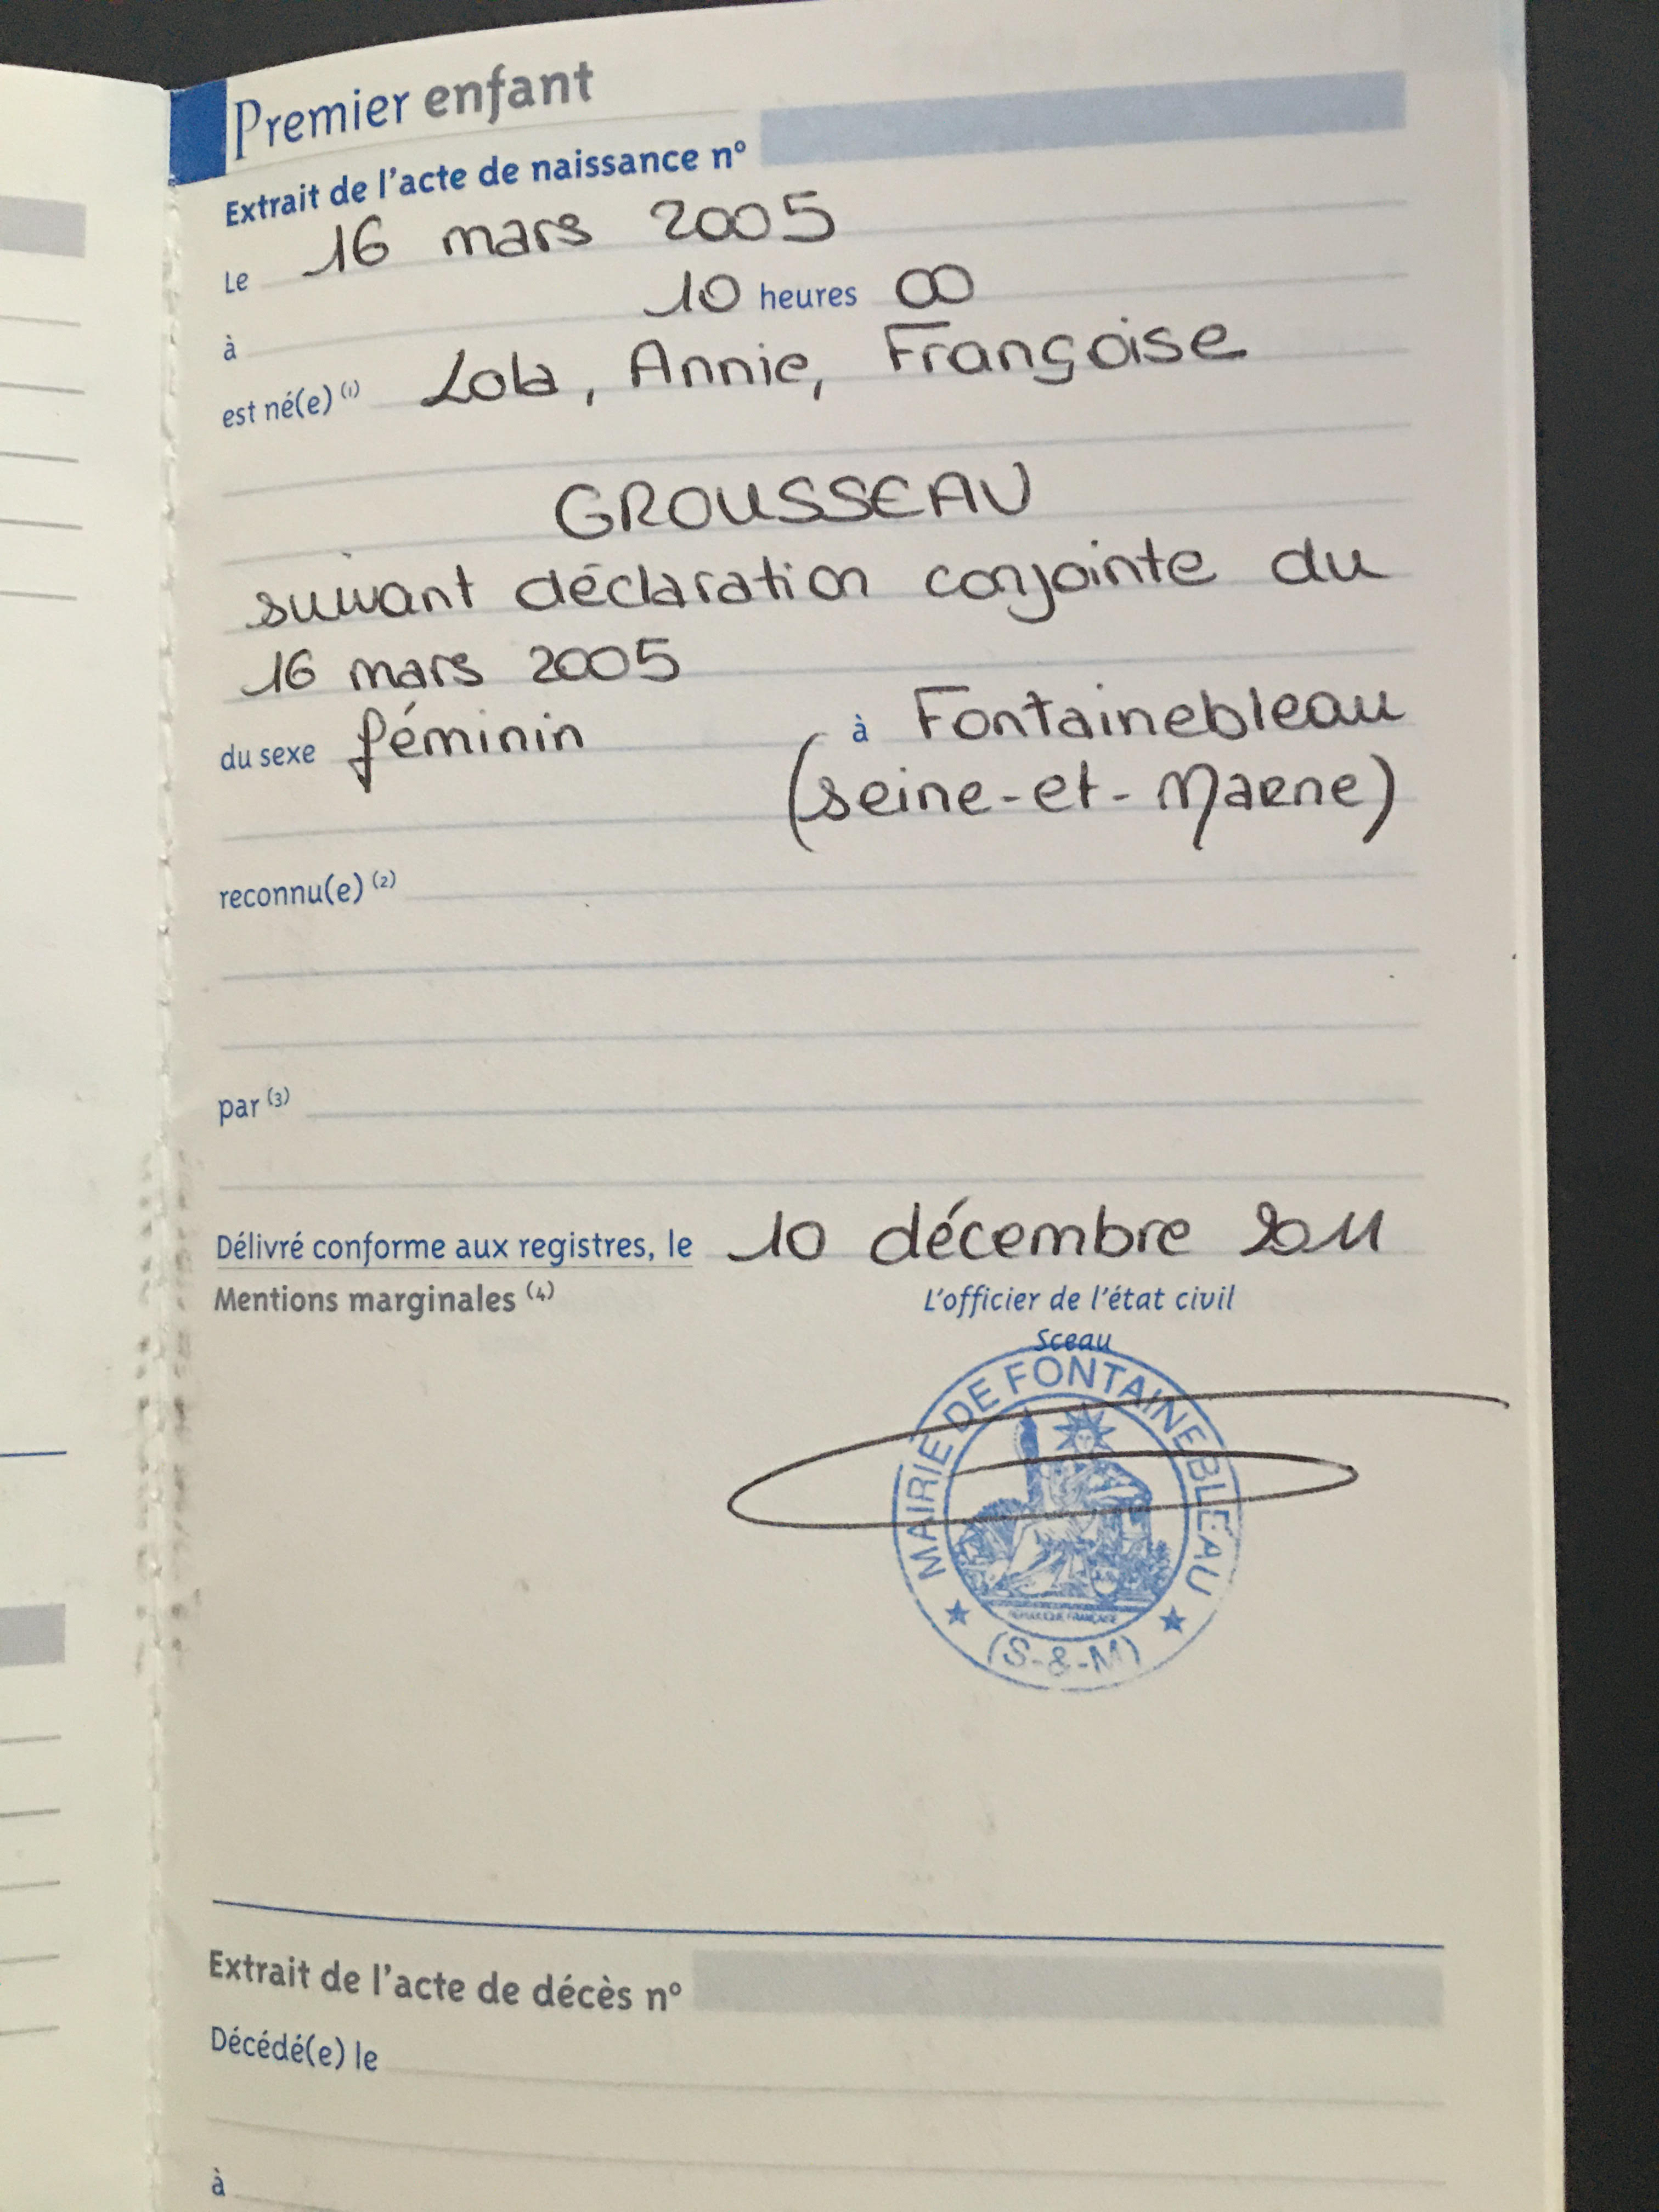 Premier enfant
Extrait de l'acte de naissance n°
Le 16 mars 2005
à 10 heures 00
est né(e) (1) Lola, Annie, Françoise
GROUSSEAU
suivant déclaration conjointe du
16 mars 2005
du sexe féminin à Fontainebleau
(seine-et-Marne)
reconnu(e) (2)
par (3)
Délivré conforme aux registres, le 10 décembre 2011
Mentions marginales (4) L'officier de l'état civil
Sceau
MAIRIE DE FONTAINEBLEAU
RÉPUBLIQUE FRANÇAISE
(S-&-M)
Extrait de l'acte de décès n°
Décédé(e) le
à